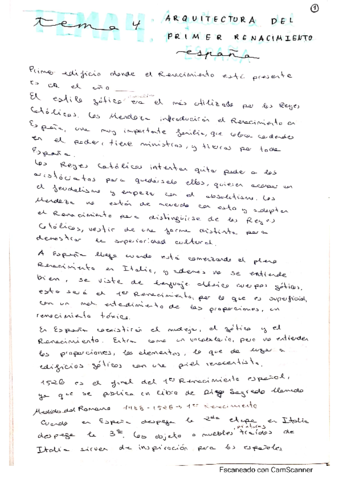 1
tema 4 ARQUITECTURA DEL
PRIMER RENACIMIENTO
españa
Primer edificio donde el Renacimiento está presente
es en el año
El estilo gótico era el más utilizado por los Reyes
Católicos. los Mendoza introducirán el Renacimiento en
España, una muy importante familia, que
en el poder, tiene ministros, y tierras por toda
España.
los Reyes Católicos intentan quitar poder a los
aristócratas para quedárselo ellos, quieren acabar con
el feudalismo y empezar con el absolutismo. los
Mendoza no están de acuerdo con esto y adoptan
el Renacimiento para distinguirse de los Reyes
Católicos, vestir de una forma distinta para
demostrar la superioridad cultural.
A España llega cuando está comenzando el pleno
Renacimiento en Italia, y además no se entiende
bien, se viste de lenguaje clásico cuerpos góticos,
esto será el 1er Renacimiento, por lo que es superficial,
con un mal entendimiento de las proporciones, un
renacimiento tónico.
En España coexistirá el mudejar, el gótico y el
Renacimiento. Entra como un vocabulario, pero no entienden
las proporciones, los elementos, lo que da lugar a
edificios góticos con una piel renacentista.
1526 es el final del 1er Renacimiento español,
ya que se publica un libro de Diego Sagredo llamado
Medidas del Romano 1488-1526 → 1er renacimiento
Cuando en España despega la 2da etapa en Italia
despega la 3ra. los objetos o muebles traidos de
Italia sirven de inspiración para los españoles
Escaneado con CamScanner